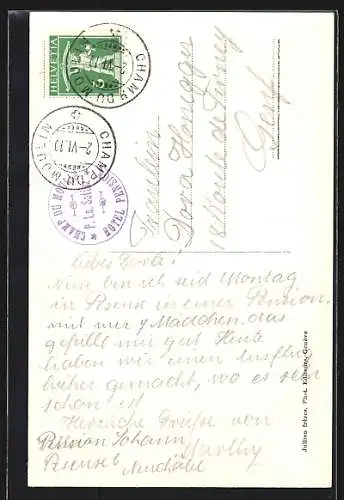 HELVETIA
CHAMP DU MOULIN
CHAMP DU MOULIN
2-VI.19
HOTEL PENSION CHAMP DU
P. La Sol
Fräulein
Dora Honegger
18 Route de
Genf
Liebes Dorli!
Nun bin ich seid Montag
in Peseux in einer Pension,
mit nur 7 Mädchen, das
gefällt mir gut. Heute
haben wir einen Ausflug
hieher gemacht, wo es sehr
schön ist.
Herzliche Grüsse von
Pension Marthy
Peseux
Neuchâtel
Jullien frères, Phot. Editeurs, Genève